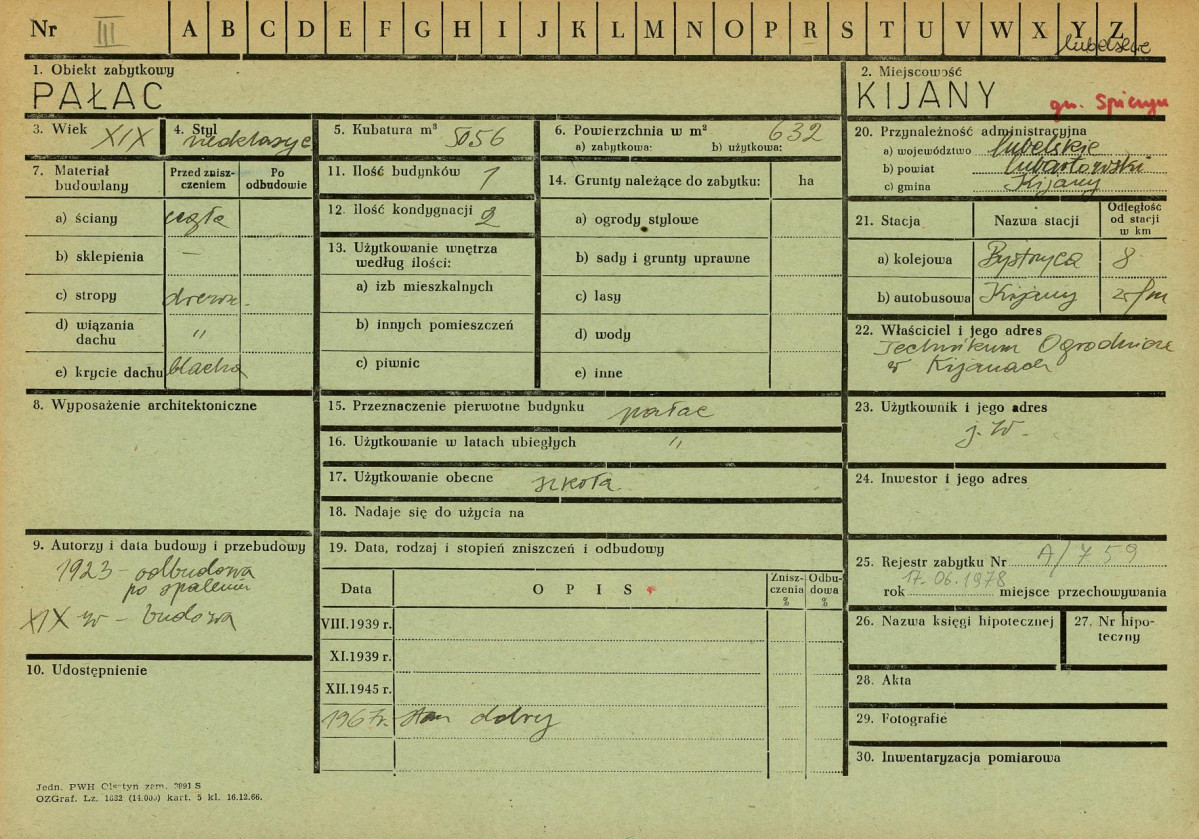 Nr III A B C D E F G H I J K L M N O P R S T U V W X Y Z
lubelskie
1. Obiekt zabytkowy
PAŁAC
2. Miejscowość
KIJANY
gm. Spiczyn
3. Wiek XIX
4. Styl
5. Kubatura m³ 5056
6. Powierzchnia w m² 632
a) zabytkowa: b) użytkowa:
7. Materiał budowlany
Przed znisz-
czeniem
Po
odbudowie
a) ściany cegła
b) sklepienia —
c) stropy drewn.
d) wiązania
dachu "
e) krycie dachu blacha
8. Wyposażenie architektoniczne
9. Autorzy i data budowy i przebudowy
1923 - odbudowa
po spaleniu
XIX w - budowa
10. Udostępnienie
11. Ilość budynków 1
12. ilość kondygnacji 2
13. Użytkowanie wnętrza
według ilości:
a) izb mieszkalnych
b) innych pomieszczeń
c) piwnic
14. Grunty należące do zabytku: ha
a) ogrody stylowe
b) sady i grunty uprawne
c) lasy
d) wody
e) inne
15. Przeznaczenie pierwotne budynku pałac
16. Użytkowanie w latach ubiegłych "
17. Użytkowanie obecne szkoła
18. Nadaje się do użycia na
19. Data, rodzaj i stopień zniszczeń i odbudowy
Data
O P I S
Znisz-
czenia
%
Odbu-
dowa
%
VIII.1939 r.
XI.1939 r.
XII.1945 r.
1967r. stan dobry
20. Przynależność administracyjna
a) województwo lubelskie
b) powiat lubartowski
c) gmina Kijany
21. Stacja
Nazwa stacji
Odległość
od stacji
w km
a) kolejowa Bystrzyca 8
b) autobusowa Kijany
22. Właściciel i jego adres
Technikum Ogrodnicze
w Kijanach
23. Użytkownik i jego adres
j. w.
24. Inwestor i jego adres
25. Rejestr zabytku Nr A/759
17.06.1978
rok miejsce przechowywania
26. Nazwa księgi hipotecznej
27. Nr hipo-
teczny
28. Akta
29. Fotografie
30. Inwentaryzacja pomiarowa
Jedn. PWH Olsztyn zam. 2091 S
OZGraf. Lz. 1632 (14.000) kart. 5 kl. 16.12.66.